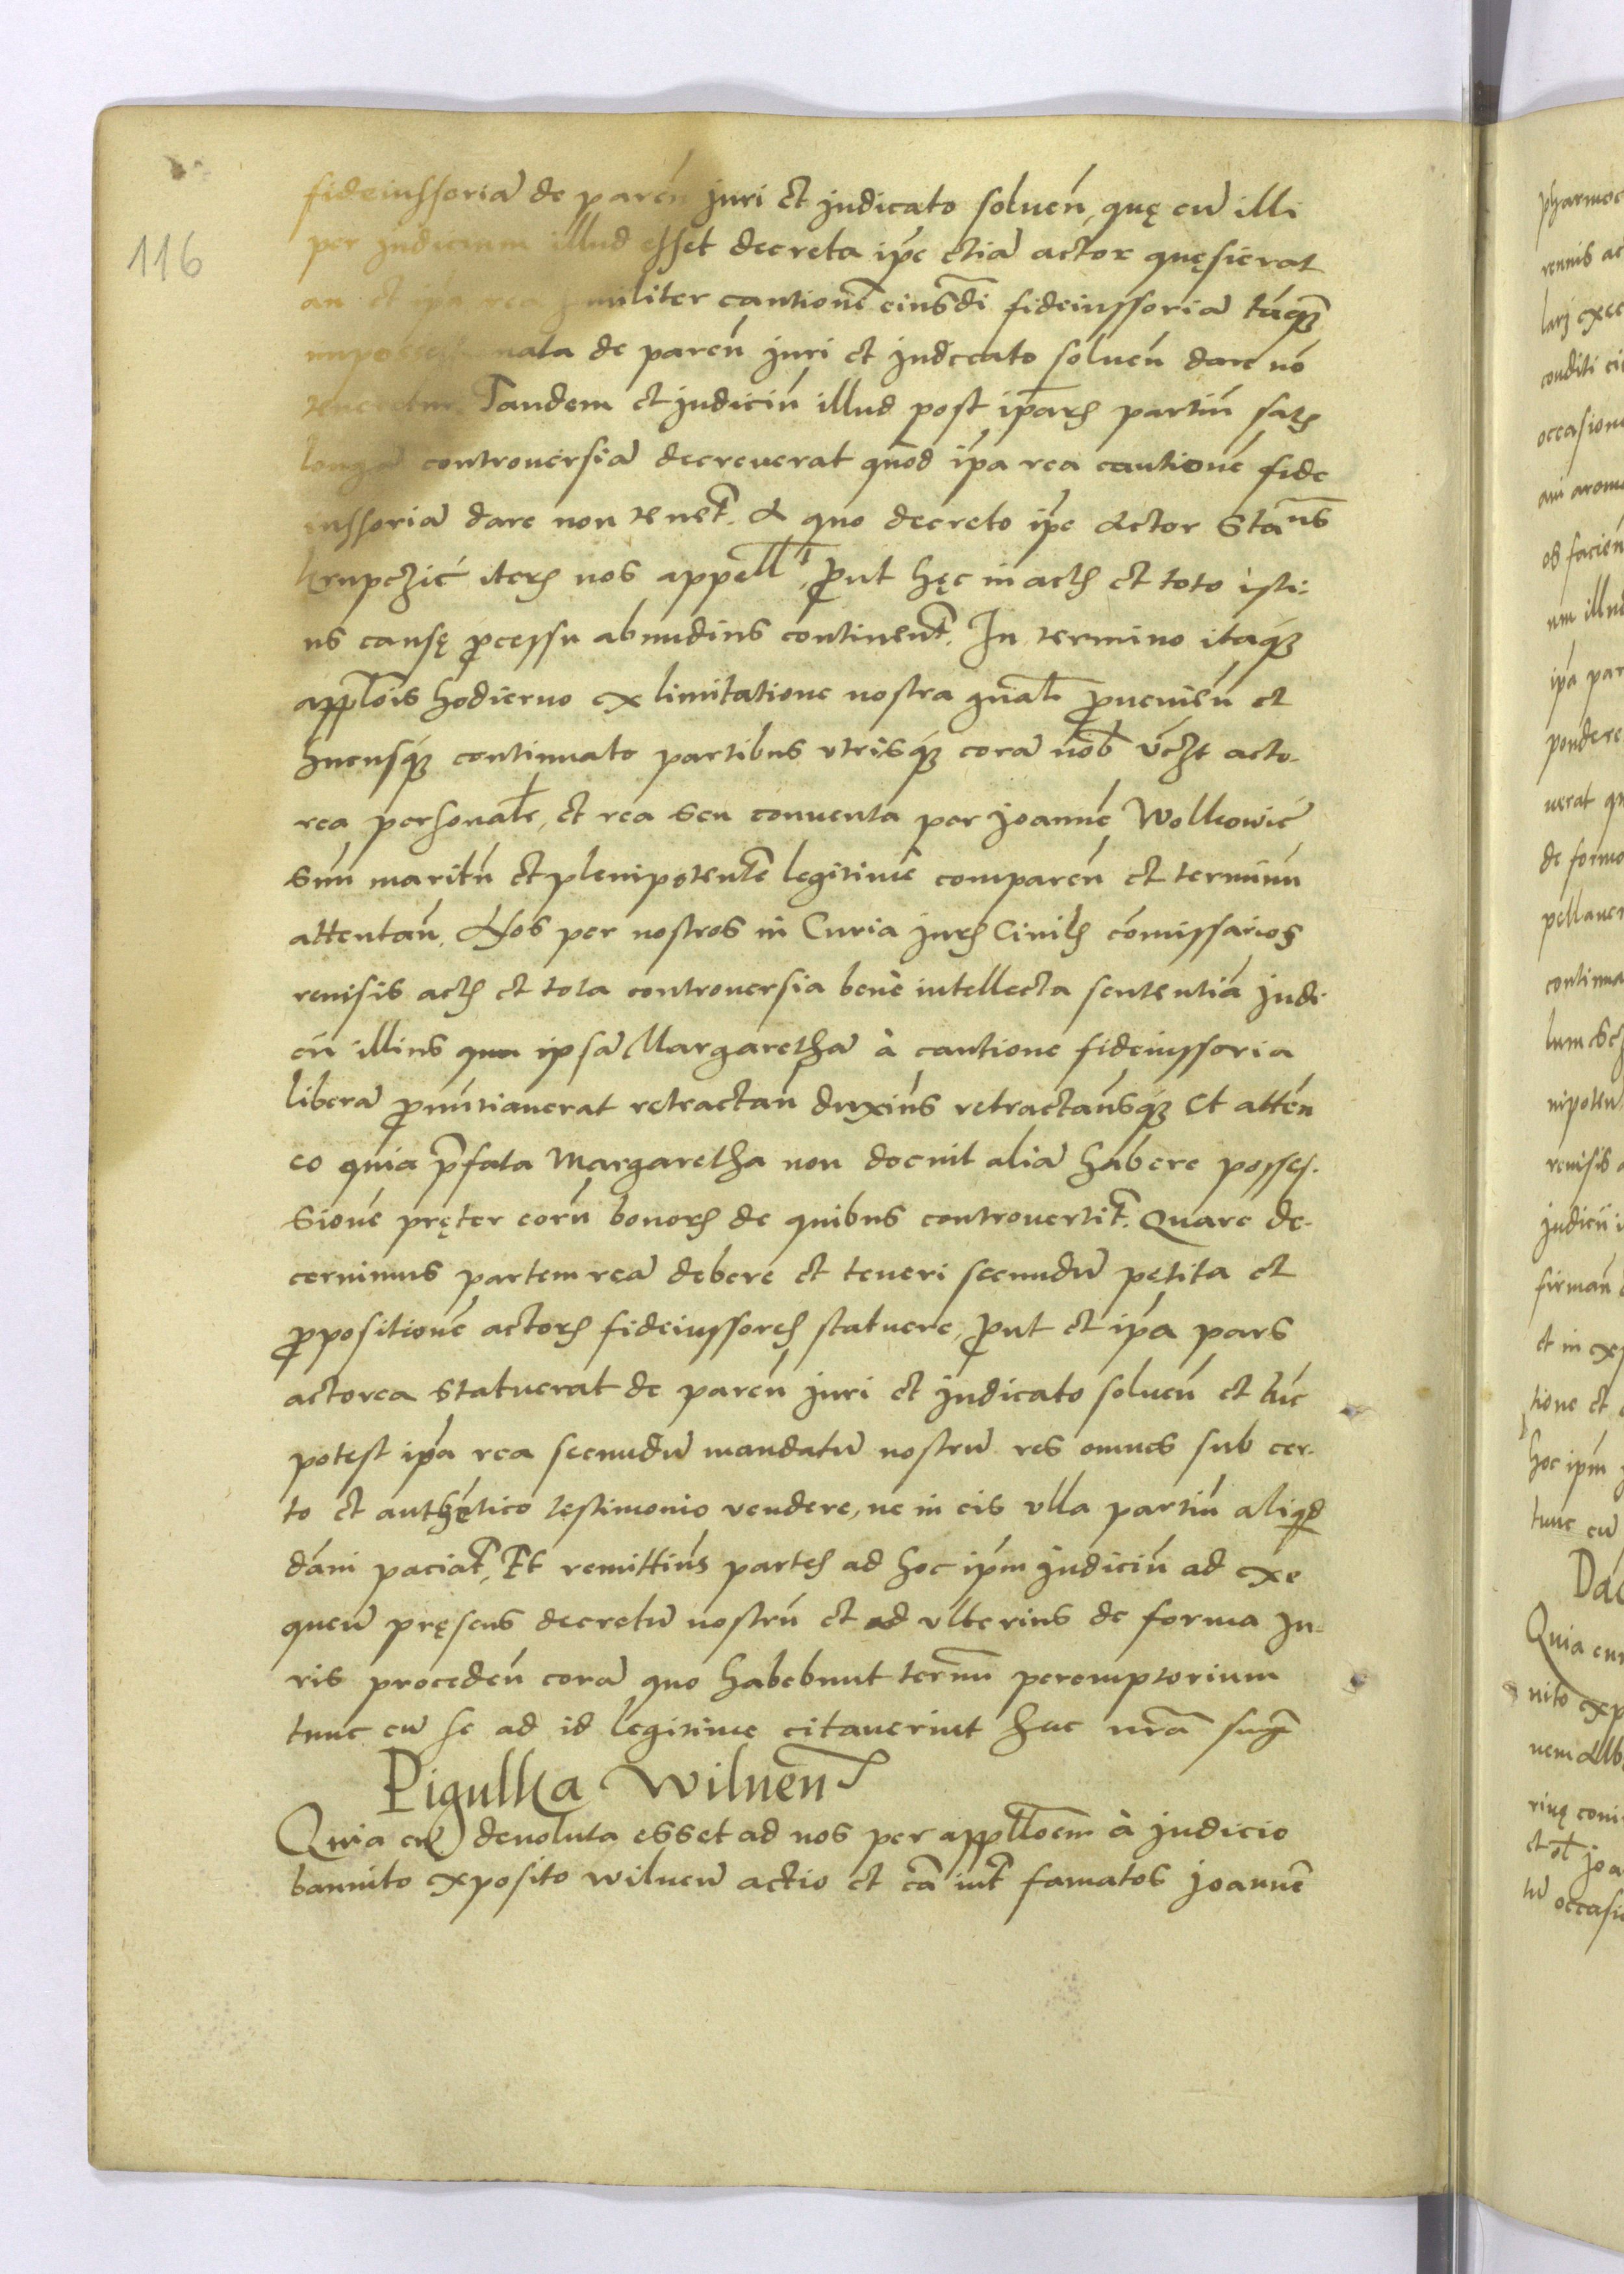 116
fideiussoriã de paren̄ juri et judicato soluen̄, quę cũ illi
per judicium illud esset decreta ip̃e etiã actor quęsierat
an et ip̃a rea similiter cautionẽ eiusdi fideiussoriã tãq̃
impossessionata de paren̄ juri et judicato soluen̄ dare nõ
teneretur. Tandem et judiciũ illud post ip̃arꝫ partiũ satꝫ
longã controuersiã decreuerat quod ip̃a rea cautionẽ fide
iussoriã dare non tenet̃. A quo decreto ip̃e Actor Stãns
Krupczic̃ iterꝫ nos appellt, p̃ut hęc in actꝫ et toto isti-
us causę p̃cessu abundius continent̃. In termino itaqꝫ
appl̃ois hodierno ex limitatione nostra gñal̃ p̃uenien̄ et
hucusqꝫ continuato partibus vtrisqꝫ corã nob̃ vczt acto-
rea personalr̃, et rea seu conuenta per Joannẽ Wolkowic̃
suũ maritũ et plenipotentẽ legitime comparen̄ et terminũ
attentan̄. Nos per nostros in Curia jurꝫ Ciuilꝫ cõmissarios
reuisis actꝫ et tota controuersia bene intellecta sententiã judi
cii illius qua ipsã Margarethã à cautione fideiussoria
liberã p̃nũtiauerat retractan̄ duxim̃s retractam̃sqꝫ Et atten̄
eo quia p̃fata Margaretha non docuit aliã habere posses-
sionẽ pręter eorũ bonorꝫ de quibus controuertit̃. Quare de-
cernimus partem reã debere et teneri secundũ petita et
p̃positionẽ actorꝫ fideiussorꝫ statuere, p̃ut et ip̃a pars
actorea statuerat de paren̄ juri et judicato soluen̄ et tũc
potest ip̃a rea secundũ mandatũ nostrũ res omnes sub cer-
to et authẽtico testimonio vendere, ne in eis vlla partiũ aliqd
dãni paciat̃, Et remittim̃s partꝫ ad hoc ip̃m judiciũ ad exe
quen̄ pręsens decretũ nostrũ et ad vlterius de forma ju-
ris proceden̄ corã quo habebunt termñ peremptorium
tunc cũ se ad id legitime citauerint hac nr̃a
Pigulka Wilnen̄
Quia cũ deuoluta esset ad nos per applloem à judicio
bannito exposito wilnen̄ actio et cã int̃ famatos Joannẽ
pharmoc
rennis ac
larj exec
conditi ci
occasione
ani aroma
os facien̄
um illud
ip̃a par
pondere
uerat qu
de forma
pellauer
continua
nipoten
reuisis a
judicii i
firman̄
et in exp
tione et
hoc ip̃m
tunc cũ
Dac
Quia cum
nito exp
nem Alb
et
occasio